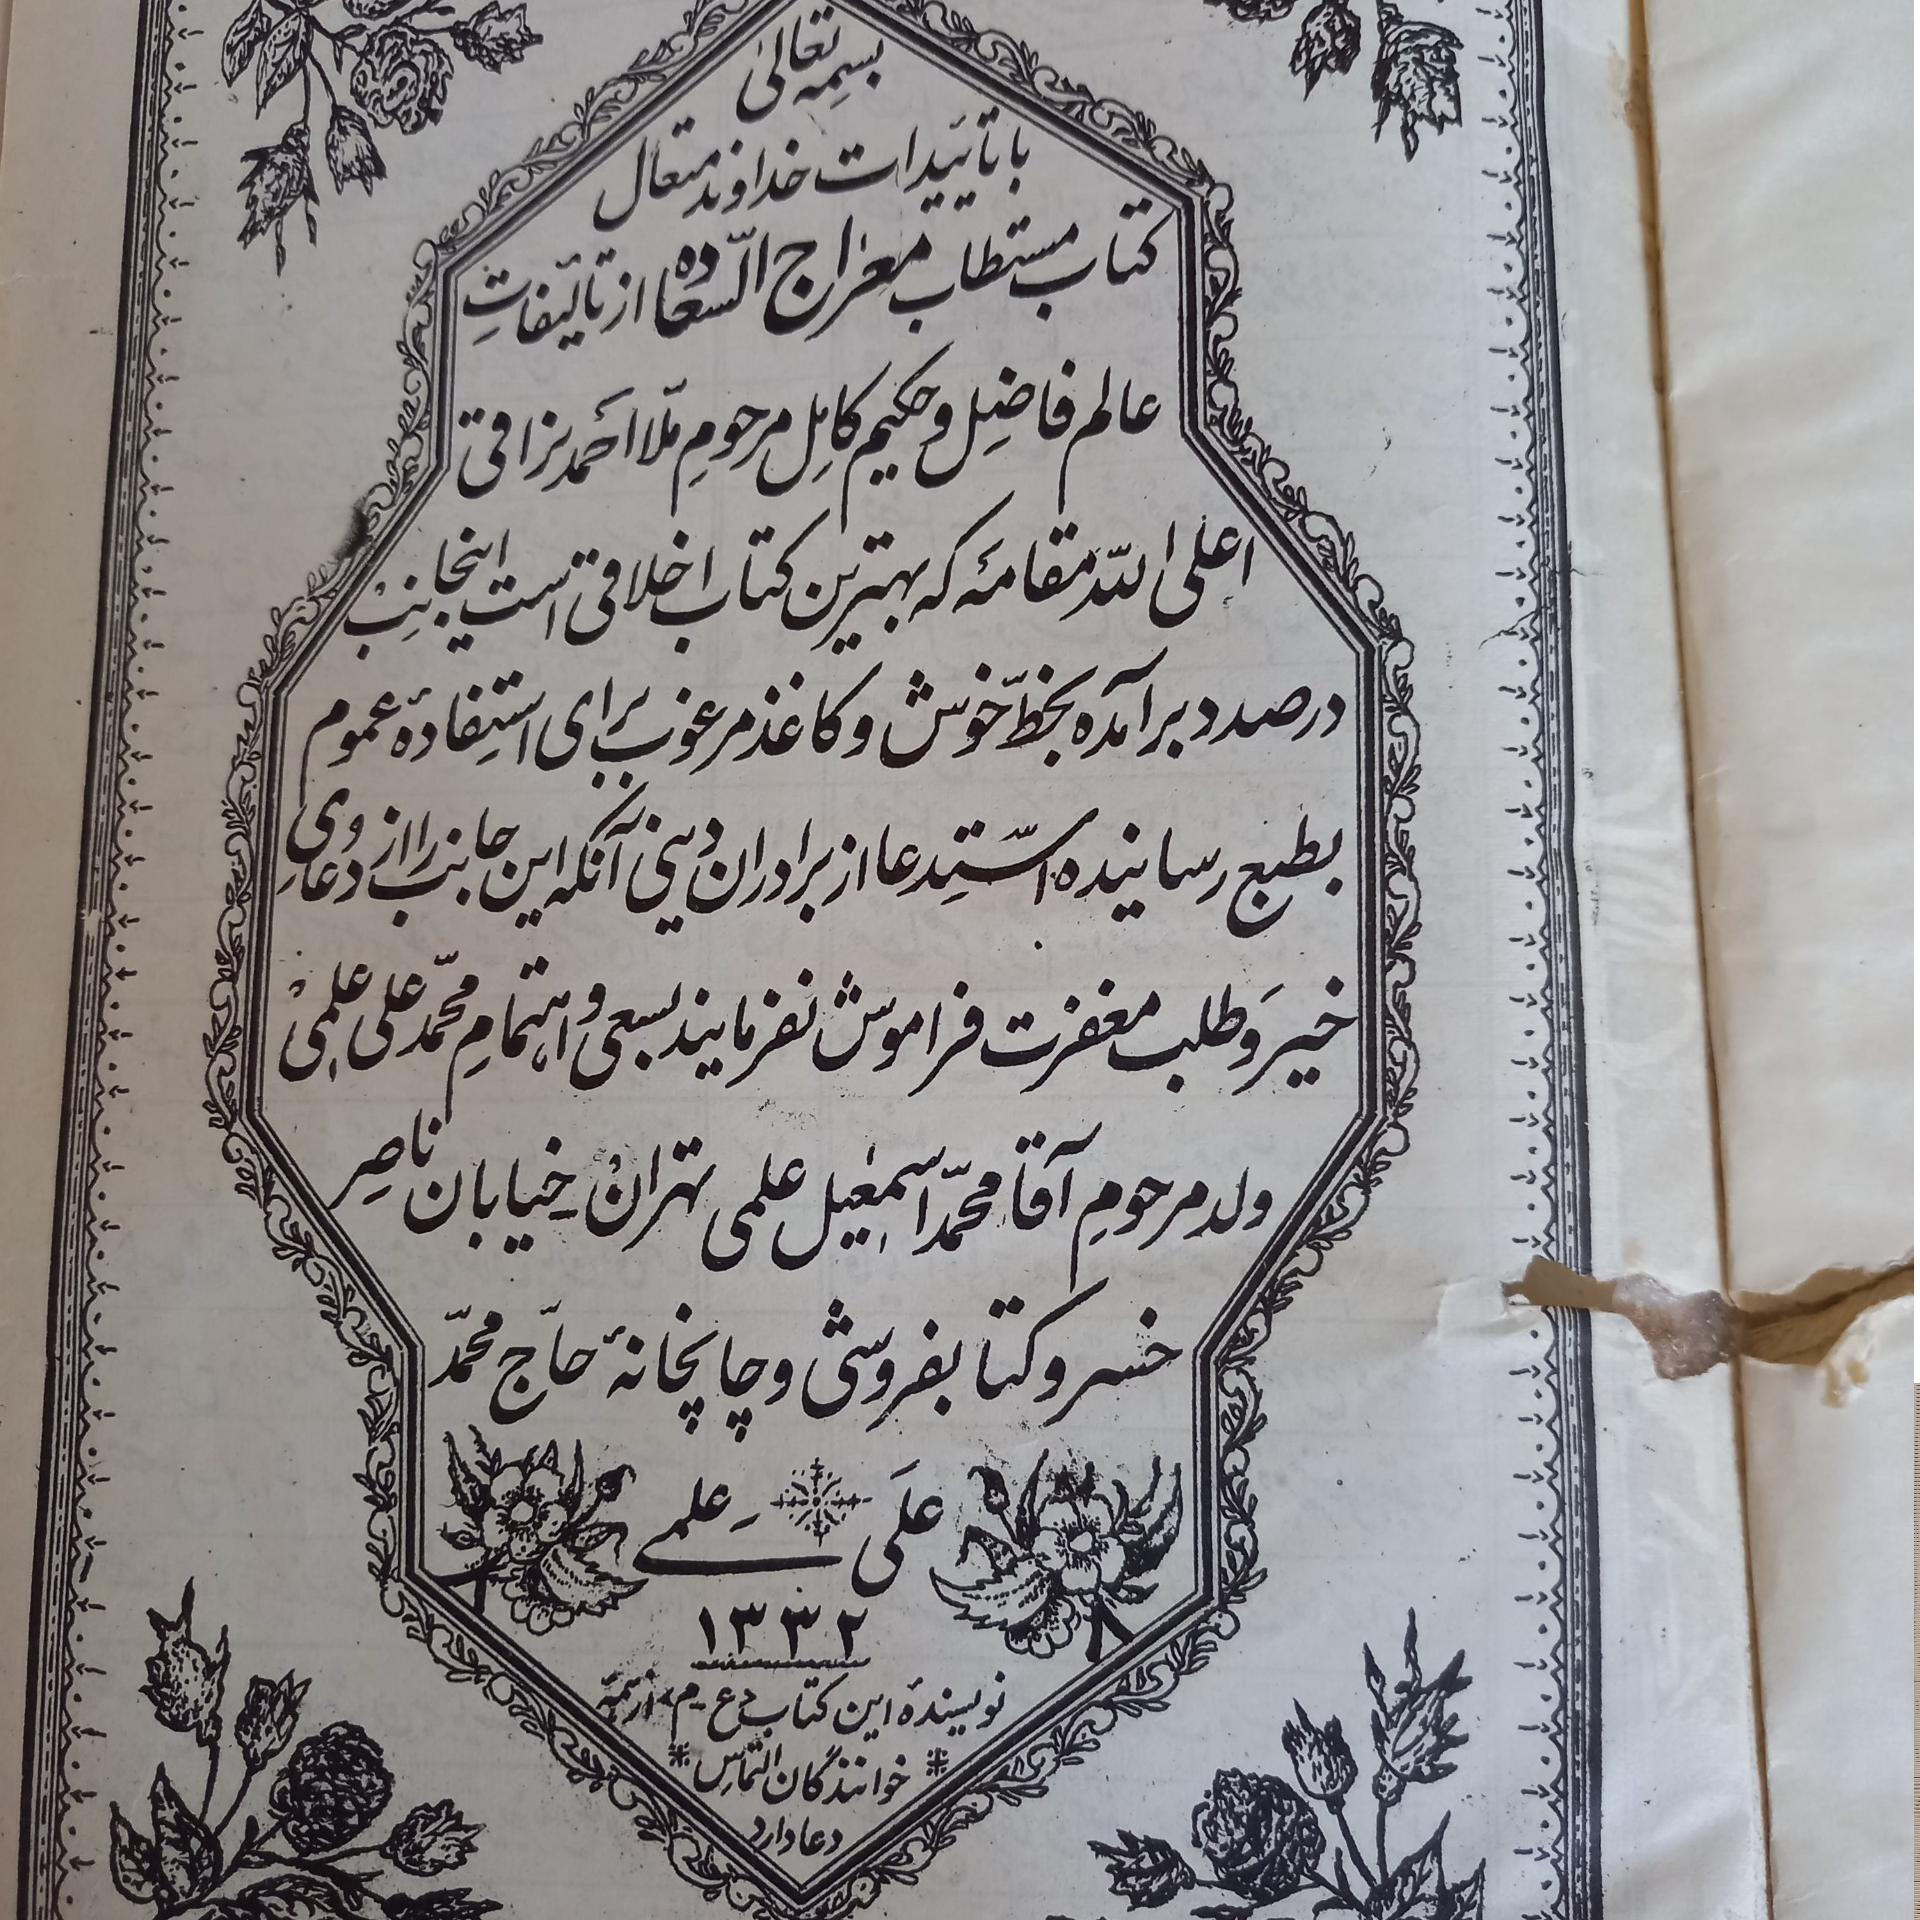 بسمِهِ تعالیٰ
با تأئیدات خداوند متعال
کتاب مستطاب معراج السّعاده از تألیفاتِ
عالم فاضِل و حکیم کامِل مرحومِ ملّا احمد نراقی
اعلی اللّه مقامهٔ که بهترین کتاب اخلاقی است اینجانِب
درصدد برآمده بخطّ خوش و کاغذ مرغوب برای استِفادهٔ عموم
بطبع رسانیده استِدعا از برادران دینی آنکه این جانب را از دعاوی
خیر وَ طلب مغفرت فراموش نفرمایند بسعی و اهتمامِ محمّد علی علمی
ولد مرحومِ آقا محمّد اسمعیل علمی تهران خیابان ناصِر
خسرو کتابفروشی و چاپخانهٔ حاّج محمّد
عَلی علمی
۱۳۳۲
نویسندهٔ این کتاب «ع - م» از همهٔ
خوانندگان التماسِ
دعا دارد